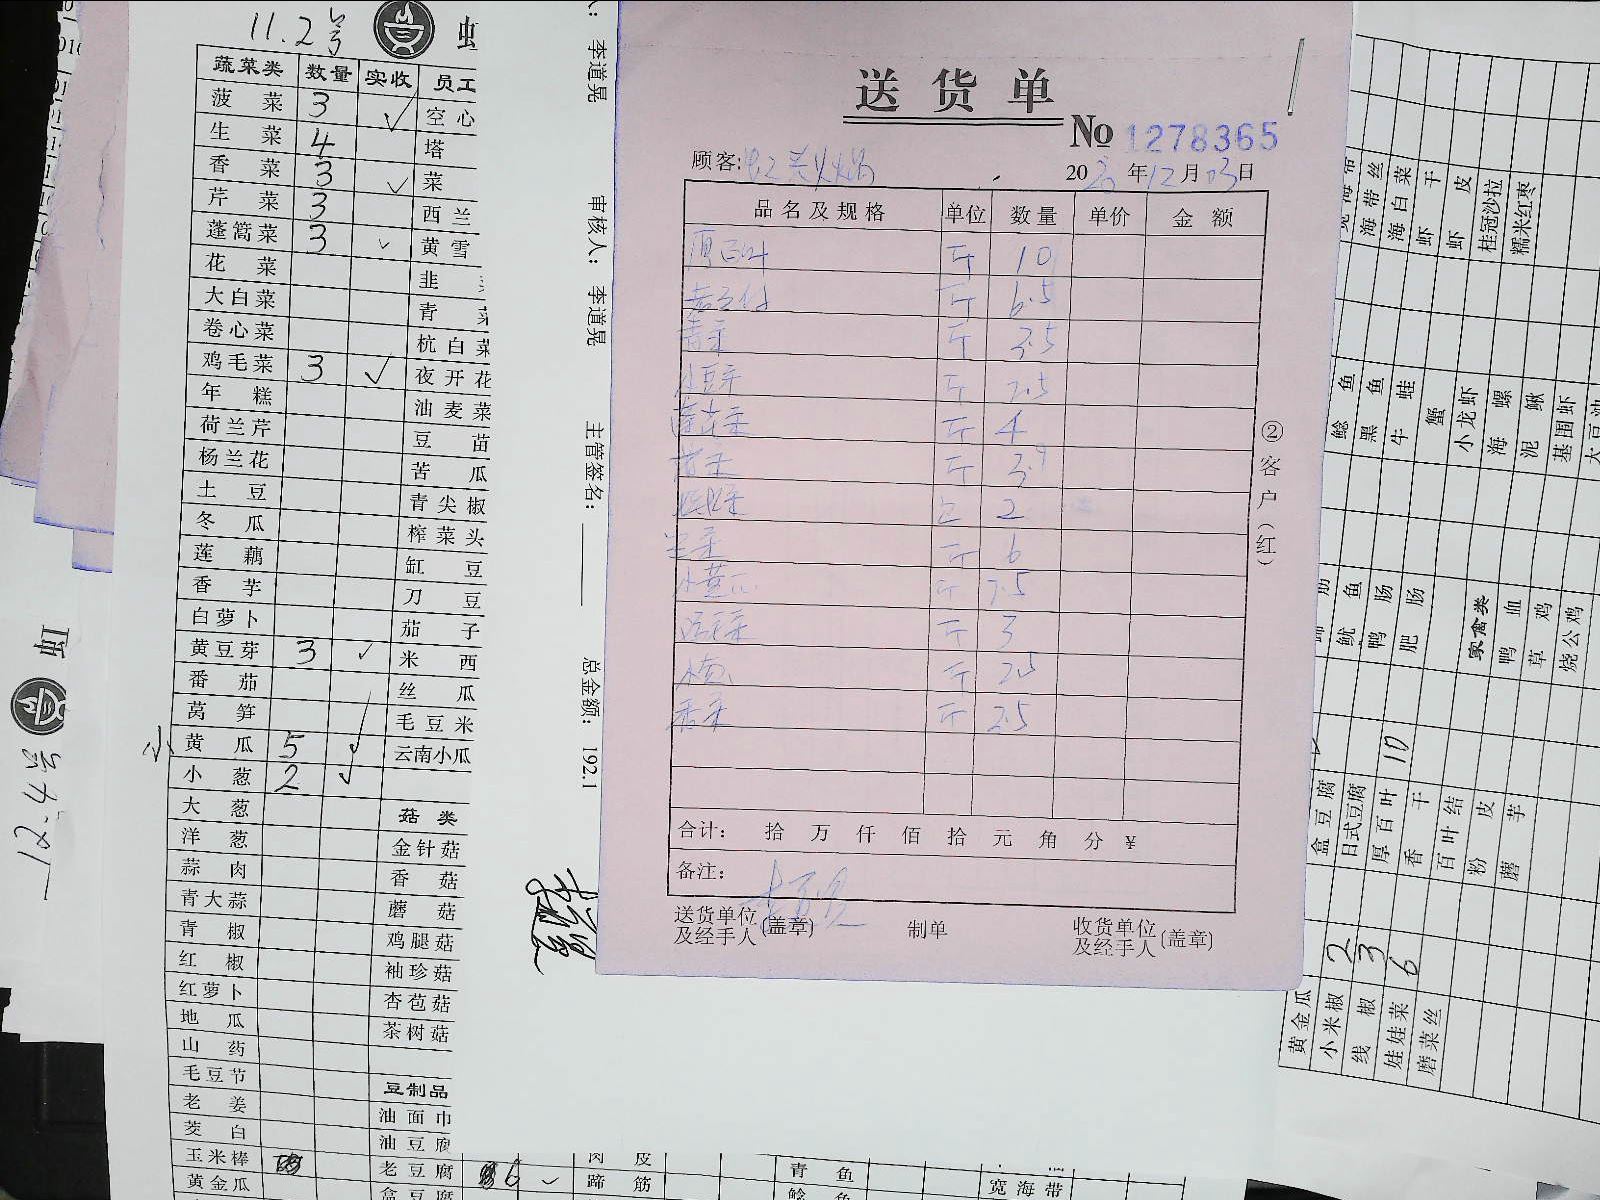 11.2号
虹
蔬菜类 数量 实收 员工
菠菜 3 ✓ 空心
生菜 4 塔
香菜 3 ✓ 菜
芹菜 3 西兰
蓬蒿菜 3 ✓ 黄雪
花菜 韭
大白菜 青菜
卷心菜 杭白菜
鸡毛菜 3 ✓ 夜开花
年糕 油麦菜
荷兰芹 豆苗
杨兰花 苦瓜
土豆 青尖椒
冬瓜 榨菜头
莲藕 缸豆
香芋 刀豆
白萝卜 茄子
黄豆芽 3 ✓ 米西
番茄 丝瓜
莴笋 毛豆米
小 黄瓜 5 ✓ 云南小瓜
小葱 2 ✓
大葱 菇类
洋葱 金针菇
蒜肉 香菇
青大蒜 蘑菇
青椒 鸡腿菇
红椒 袖珍菇
红萝卜 杏苞菇
地瓜 茶树菇
山药
毛豆节 豆制品
老姜 油面巾
茭白 油豆腐
玉米棒 老豆腐 6 ✓ 蹄筋
黄金瓜 盒豆腐
肉皮
青鱼
鲶鱼
宽海带
李道晃
审核人: 李道晃
主管签名:
总金额: 192.1
送货单
No 1278365
顾客:
2020年12月03日
品名及规格 单位 数量 单价 金额
厚百叶 斤 10
斤 6.5
青菜 斤 3.5
斤
斤 4
斤 3.9
2
生菜 斤 6
斤
斤 3
斤 2.5
香菜 斤 2.5
合计: 拾 万 仟 佰 拾 元 角 分 ¥
备注:
送货单位及经手人(盖章) 制单 收货单位及经手人(盖章)
②客户(红)
虹
12.4号
宽海带
海带丝
海白菜
虾干
虾皮
桂冠沙拉
糯米红枣
鲶鱼
黑鱼
牛蛙
蟹
小龙虾
海螺
泥鳅
基围虾
大豆油
蹄筋
鱿鱼
鸭肠
肥肠
家禽类
鸭血
草鸡
烧公鸡
盒豆腐
日式豆腐
厚百叶 10
香干
百叶结
粉皮
蘑芋
黄金瓜
小米椒 2
线椒 3
娃娃菜 6
磨菜丝